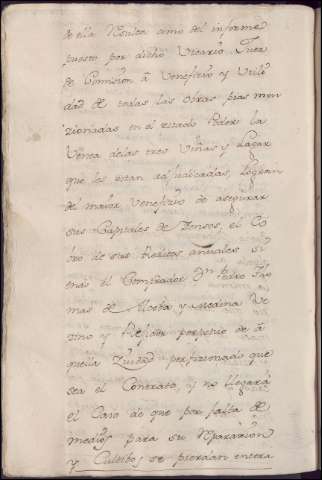 de ella Resulta como del informe
puesto por dicho Vicario Juez
de Comision â Veneficio y Utili
dad de todas las obras pias men
zionadas en el estado Poder la
Venta de las tres Viñas y Lagar
que les estan adjudicadas, logran
del maior Veneficio de asegurar
sus Capitales de Zensos, el Co
bro de sus Reditos anuales si
endo el Comprador Dn Pedro
mas de Acosta y Medina Ve
zino y Rexidor perpetuo de a
quella Ziudad perfizionado que
sea el Contrato, y no llegará
el Caso de que por falta de
medios para su Reparazion
y Cultibos se pierdan entera